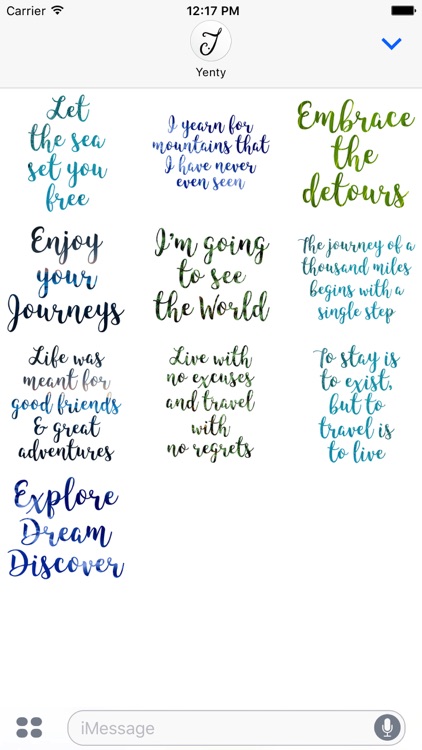 Carrier 12:17 PM
J
Yenty
Let
the sea
set you
free
I yearn for
mountains that
I have never
even seen
Embrace
the
detours
Enjoy
your
Journeys
I'm going
to see
the World
The journey of a
thousand miles
begins with a
single step
Life was
meant for
good friends
& great
adventures
Live with
no excuses
and travel
with
no regrets
To stay is
to exist,
but to
travel is
to live
Explore
Dream
Discover
iMessage